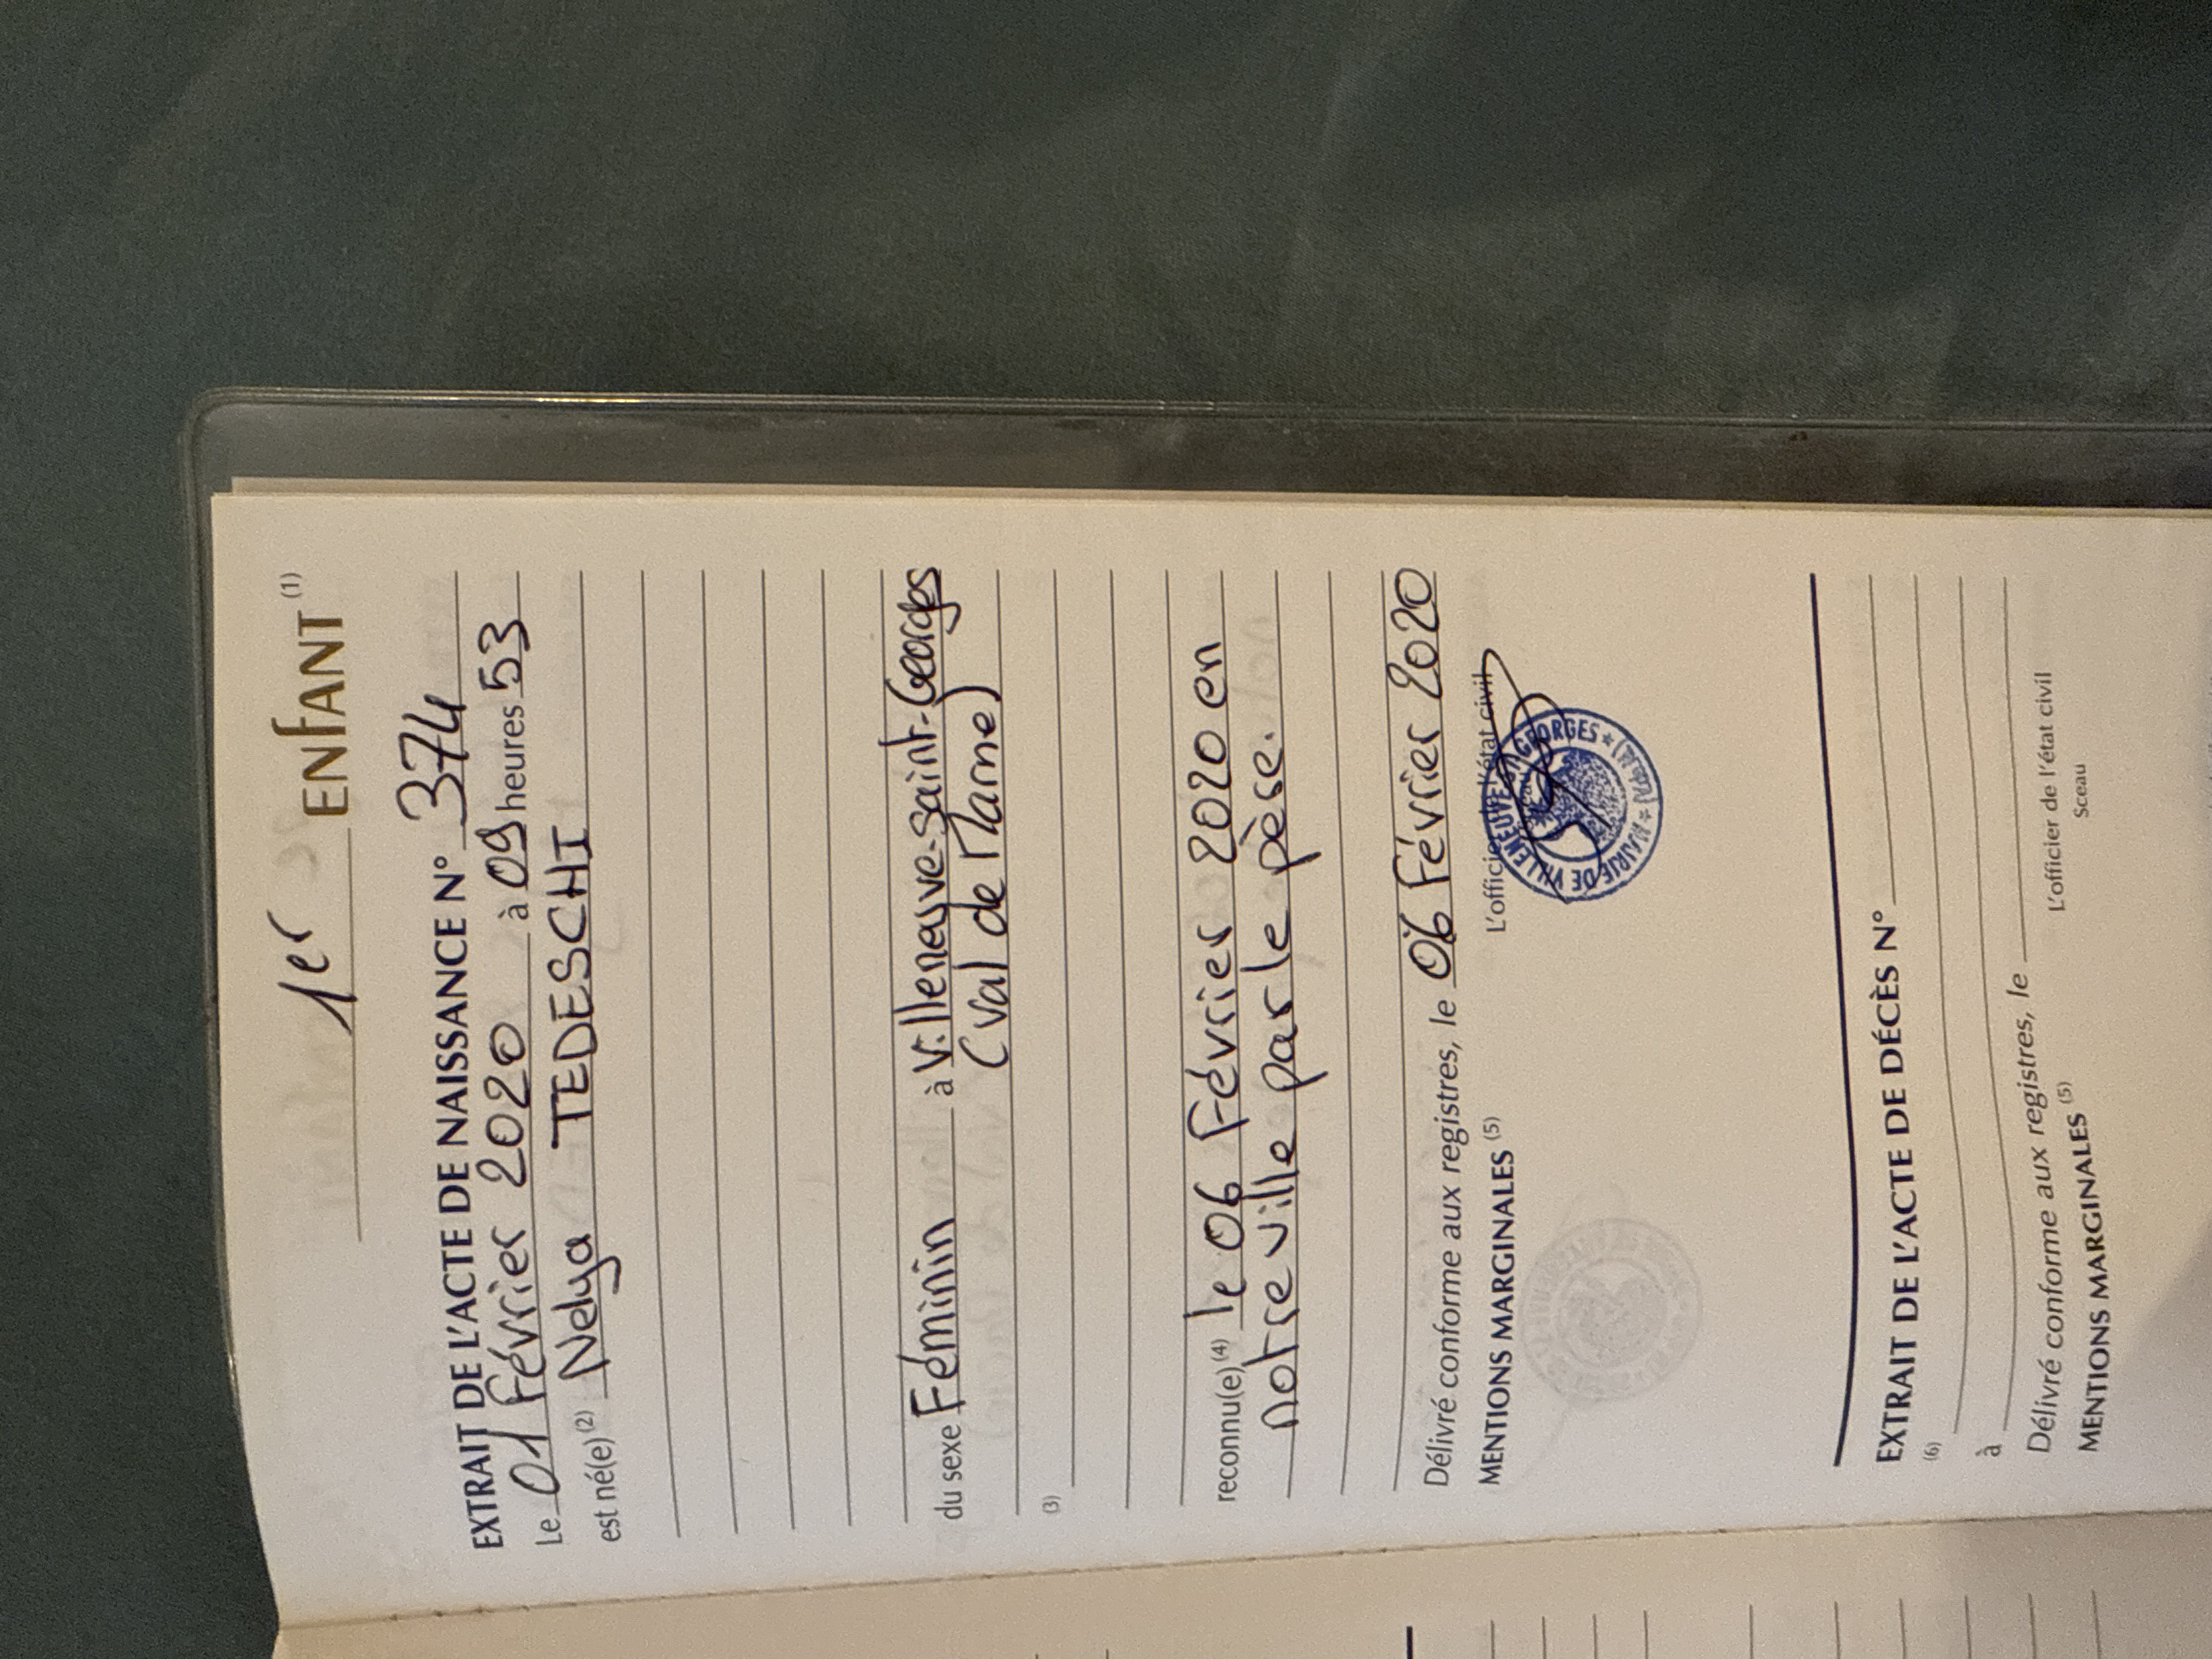 1er ENFANT (1)
EXTRAIT DE L'ACTE DE NAISSANCE N° 374
Le 01 Février 2020 à 09 heures 53
est né(e) (2) Nelya TEDESCHI
du sexe Féminin à Villeneuve-Saint-Georges
(Val de Marne)
(3)
reconnu(e) (4) le 06 Février 2020 en
notre ville par le père.
Délivré conforme aux registres, le 06 Février 2020
MENTIONS MARGINALES (5)
L'officier de l'état civil
MAIRIE DE VILLENEUVE ST GEORGES
EXTRAIT DE L'ACTE DE DÉCÈS N°
(6)
à
Délivré conforme aux registres, le
MENTIONS MARGINALES (5)
L'officier de l'état civil
Sceau